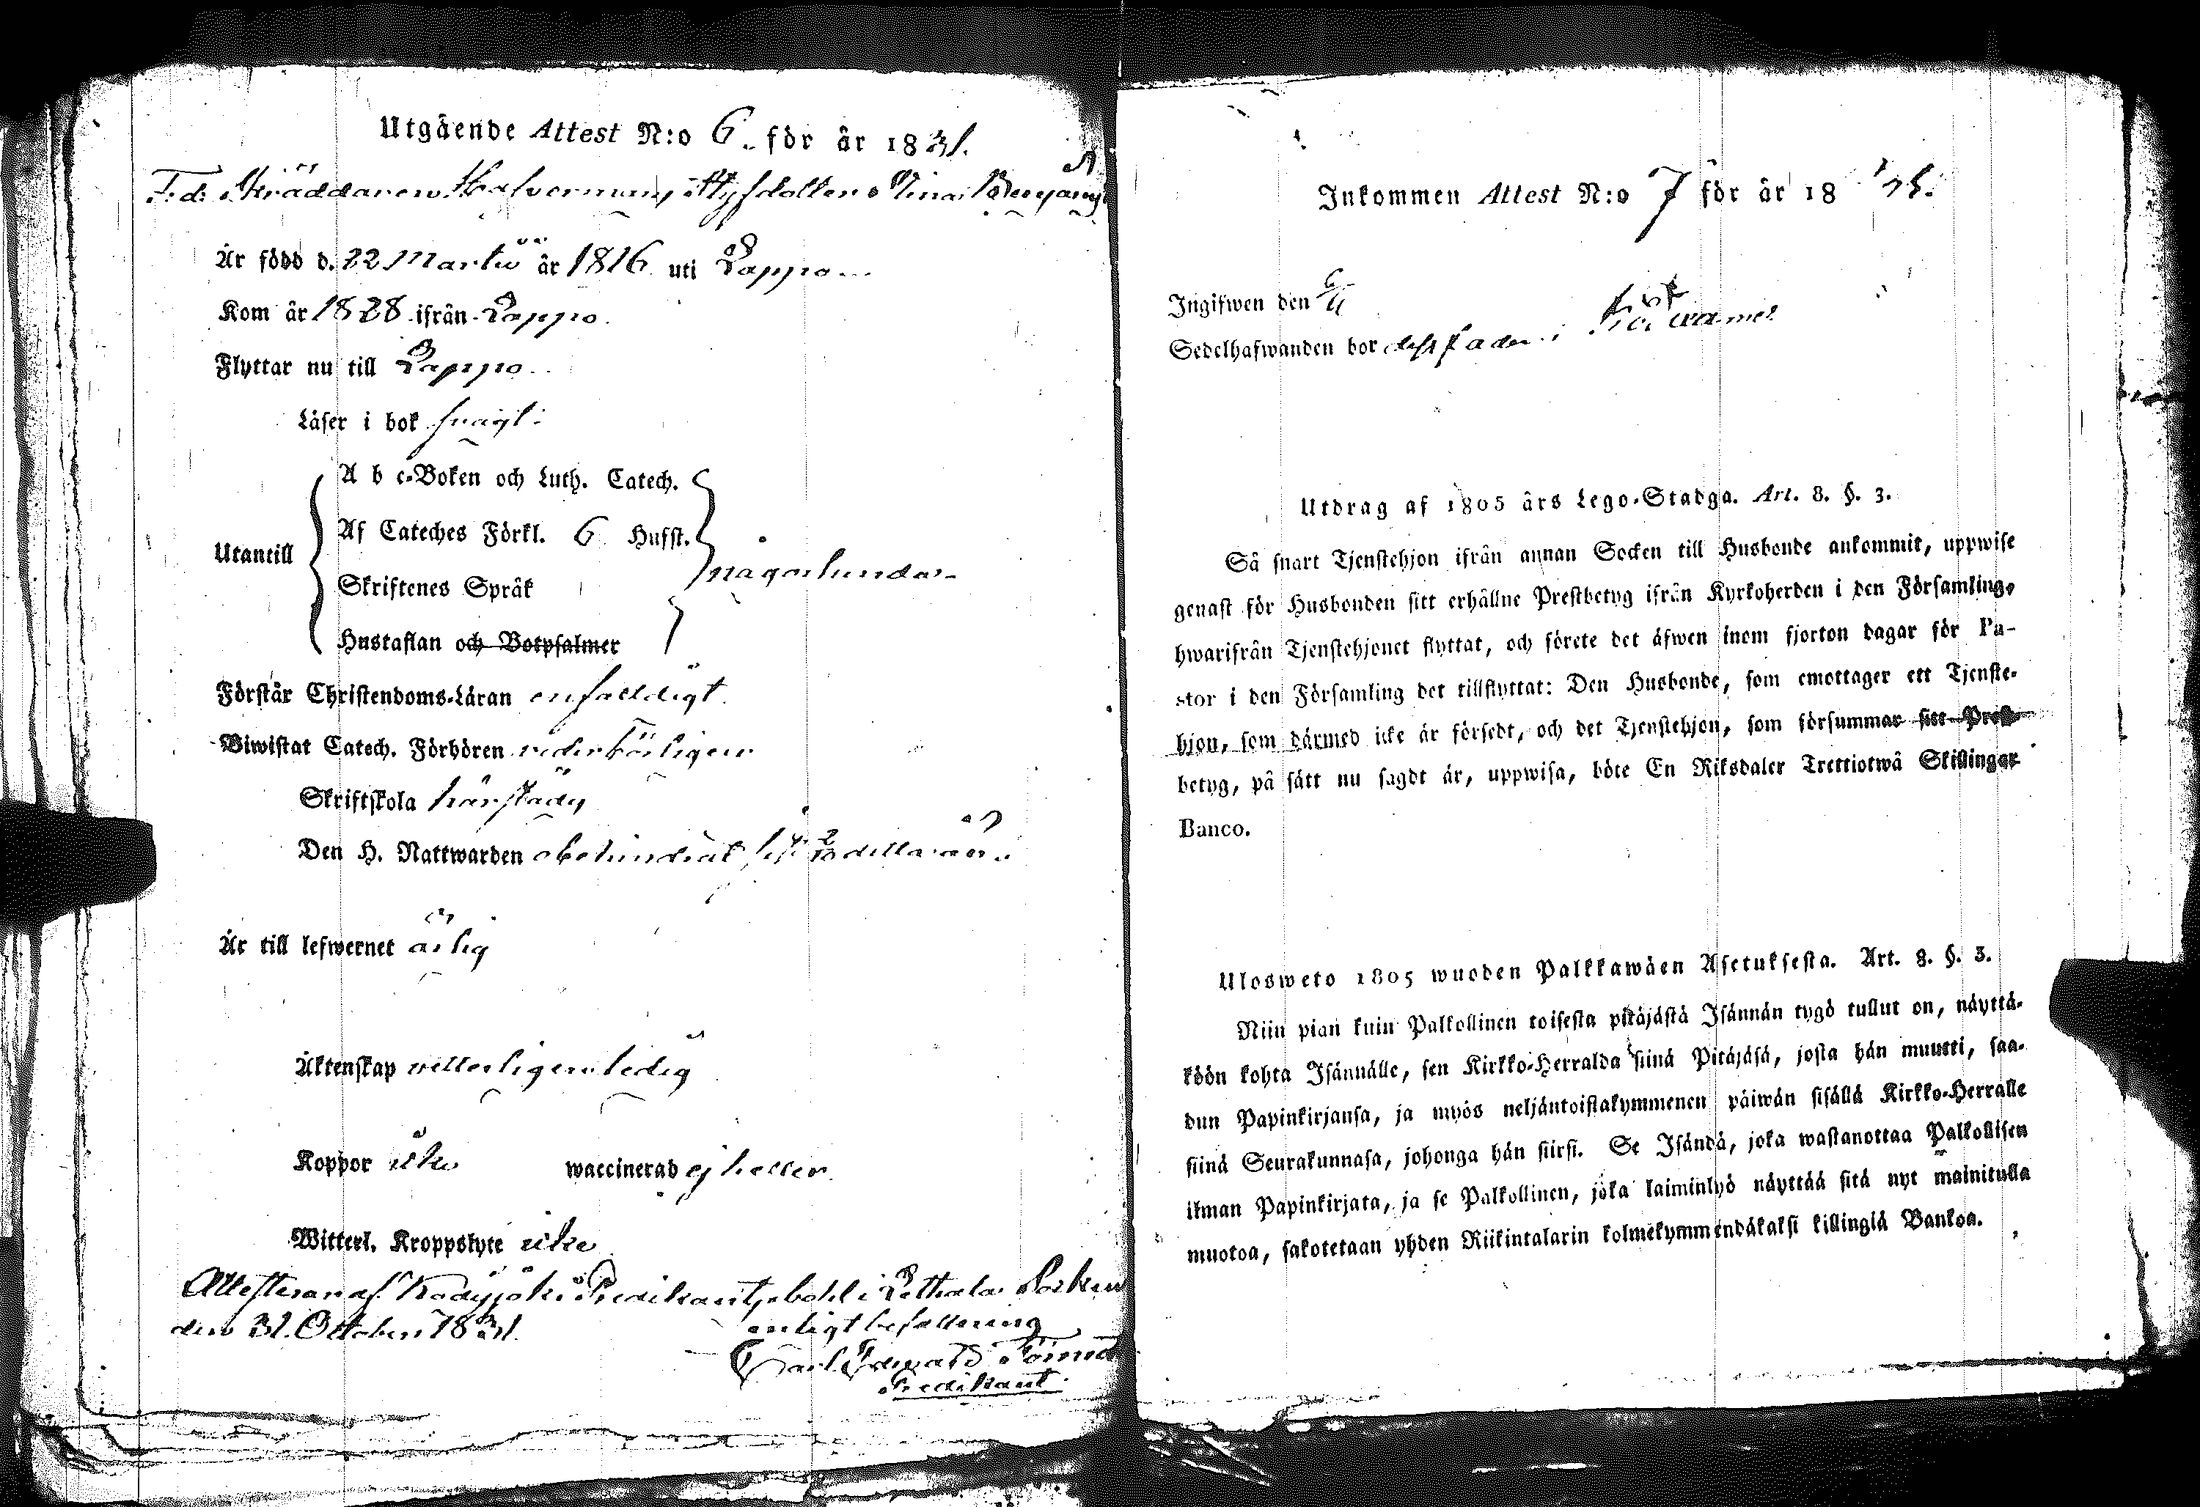 Utgående Attest N:o 6. för år 1831.
F. d. Skräddaren
Är född d. 22 Martii år 1816 uti Lappo
Kom år 1828 ifrån Lappo.
Flyttar nu till Lappo.
Läser i bok svagl:
A b c-Boken och Luth. Catech.
Af Cateches Förkl. 6 Hufst.
Utantill någorlunda
Skriftenes Språk
Hustaflan och Botpsalmer
Förstår Christendoms-Läran enfaldigt
Biwistat Catech. Förhören vederbörligen
Skriftskola härstädes
Den H. Nattwarden obehindrat detta år.
Är till lefwernet ärlig
Äktenskap vetterligen ledig
Koppor icke waccinerad ej heller.
Witterl. Kroppslyte icke
Attesteras af Predikantsbohl i Lethala Socken
den 31. October 1831.
enligt befallning
Carl Edvard
Predikant.
Inkommen Attest N:o 7 för år 18
Ingifwen den 6/11
Sedelhafwanden bor
Utdrag af 1805 års Lego-Stadga. Art. 8. §. 3.
Så snart Tjenstehjon ifrån annan Socken till Husbonde ankommit, uppwise
genast för Husbonden sitt erhållne Prestbetyg ifrån Kyrkoherden i den Församling,
hwarifrån Tjenstehjonet flyttat, och förete det äfwen inom fjorton dagar för Pa-
stor i den Församling det tillflyttat: Den Husbonde, som emottager ett Tjenste-
hjon, som därmed icke är försedt, och det Tjenstehjon, som försummar sitt Prest-
betyg, på sätt nu sagdt är, uppwisa, böte En Riksdaler Trettiotwå Skillingar
Banco.
Ulosweto 1805 wuoden Palkkawäen Asetuksesta. Art. 8. §. 3.
Niin pian kuin Palkollinen toisesta pitäjästä Isännän tygö tullut on, näyttä-
köön kohta Isännälle, sen Kirkko-Herralda siinä Pitäjäsä, josta hän muutti, saa-
dun Papinkirjansa, ja myös neljäntoistakymmenen päiwän sisällä Kirkko-Herralle
siinä Seurakunnasa, johonga hän siirsi. Se Isändä, joka wastanottaa Palkollisen
ilman Papinkirjata, ja se Palkollinen, joka laiminlyö näyttää sitä nyt mainitulla
muotoa, sakotetaan yhden Riikintalarin kolmekymmendäkaksi killingiä Bankoa.